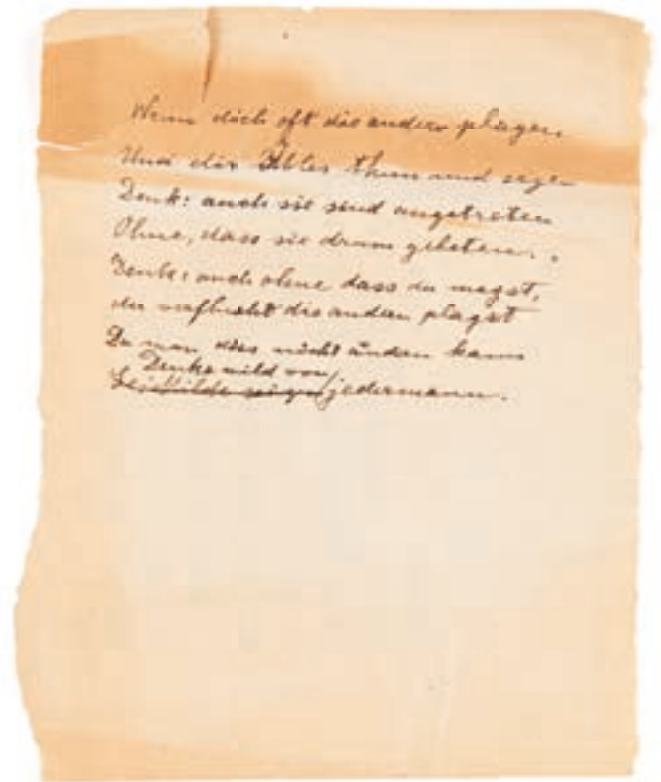 Wenn dich oft die andern plagen
Und dir Übles thun und sagen
Denk: auch sie sind angetreten
Ohne, dass sie drum gebeten.
Denke: auch ohne dass du magst,
du verflucht die andern plagst
Da man dies nicht ändern kann
Denke mild von
jedermann.